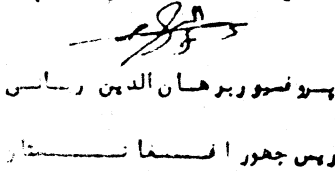 پروفسور برهان الدین ربانی
ریس جمهور افغانستان